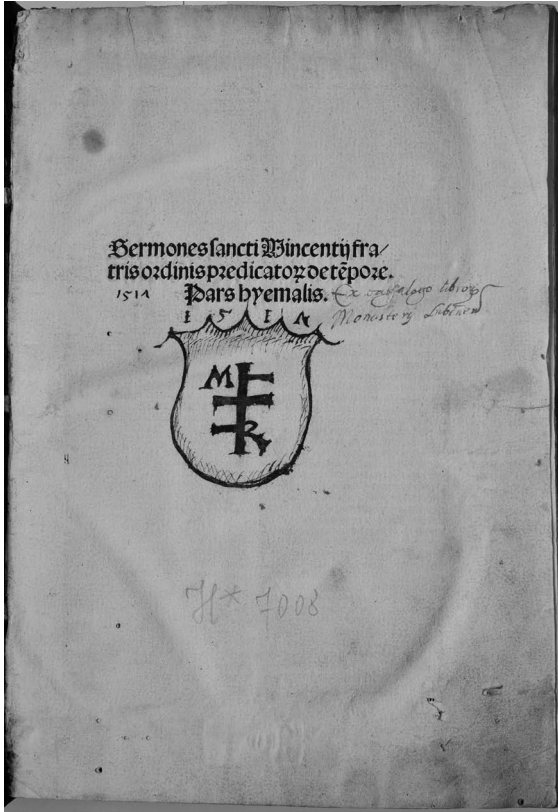 Sermones sancti Vincentij fra/
tris ordinis predicatoꝝ de tēpore.
1514 Pars hyemalis. Ex catalogo libroꝝ
1514 Monasterij Lubinen
M
R
H* 7008